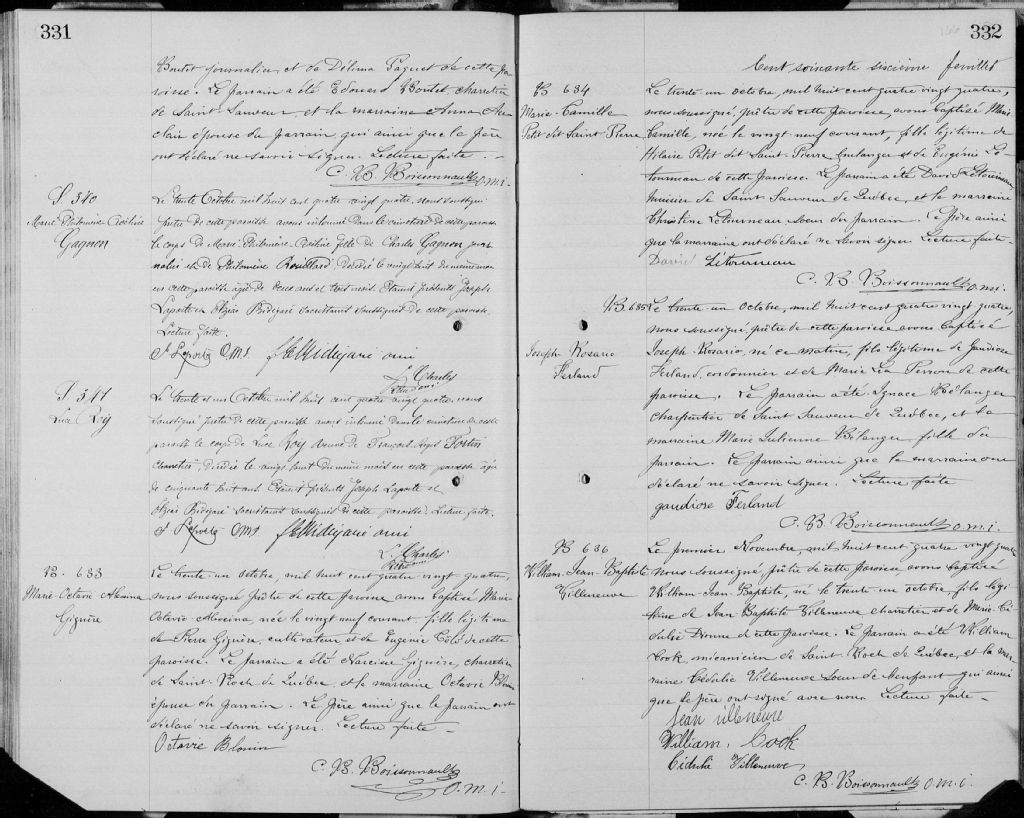 331
Boutet journalier et de Délima Paquet de cette pa-
roisse. Le parrain a été Edouard Boutet, charretier
de Saint-Sauveur, et la marraine Anna Au-
clair épouse du parrain qui ainsi que le père
ont déclaré ne savoir signer. Lecture faite. -
C. B. Boissonnault O.m.i-
S 340
Marie Philomène
Gagnon
Le trente Octobre mil huit cent quatre vingt quatre, nous soussigné
prêtre de cette paroisse avons inhumé dans le cimetière de cette paroisse
le corps de Marie Philomène fille de Charles Gagnon jour-
nalier et de Philomène Rouillard, décédée le vingt huit du même mois
en cette paroisse âgée de deux ans et trois mois. Etaient présents Joseph
Laporte et Elzéar Bidégaré soussignés de cette paroisse.
Lecture faite.
J Laporte OMI.
L. Charles
Ptre omi
S 341
Luce Roy
Le trente et un Octobre mil huit cent quatre vingt quatre, nous
soussigné prêtre de cette paroisse avons inhumé dans le cimetière de cette
paroisse le corps de Luce Roy épouse de François Fortin
charretier, décédée le vingt huit du même mois en cette paroisse âgée
de cinquante huit ans. Etaient présents Joseph Laporte et
Elzéar Bidégaré soussignés de cette paroisse. Lecture faite.
J Laporte OMI.
L. Charles
Ptre omi
B. 683
Marie Octavie Alvina
Giguère
Le trente-un octobre, mil huit cent quatre vingt quatre,
nous soussigné prêtre de cette paroisse avons baptisé Marie
Octavie Alvina, née le vingt neuf courant, fille légitime
de Pierre Giguère, cultivateur et de Eugénie Côté de cette
paroisse. Le parrain a été Narcisse Giguère, charretier
de Saint-Roch de Québec et la marraine Octavie Blouin
épouse du parrain. Le père ainsi que le parrain ont
déclaré ne savoir signer. Lecture faite -
Octavie Blouin
C. B. Boissonnault
O.m.i-
332
Cent soixante sixième feuillet
B 684
Marie-Camille
Petit dit Saint Pierre
Le trente-un octobre, mil huit cent quatre vingt quatre,
nous soussigné, prêtre de cette paroisse, avons baptisé Marie
Camille née le vingt-neuf courant, fille légitime de
Hilaire Petit dit Saint-Pierre, boulanger et de Eugénie Lé-
tourneau de cette paroisse. Le parrain a été David Létourneau,
menuisier de Saint Sauveur de Québec, et la marraine
Christine Létourneau soeur du parrain. Le Père ainsi
que la marraine ont déclaré ne savoir signer Lecture faite-
David Létourneau
C. B. Boissonnault O.m.i-
B. 685
Joseph Rosario
Ferland
Le trente-un octobre, mil huit cent quatre vingt quatre,
nous soussigné, prêtre de cette paroisse avons baptisé
Joseph-Rosario, né ce matin, fils légitime de Gaudiose
Ferland, cordonnier et de Marie Léa Perron de cette
paroisse. Le parrain a été Ignace Bélanger
charpentier de Saint Sauveur de Québec, et la
marraine Marie Julienne Bélanger fille du
parrain. Le parrain ainsi que la marraine ont
déclaré ne savoir signer. Lecture faite
gaudiose Ferland
C. B. Boissonnault O.m.i-
B 686
William-Jean-Baptiste
Villeneuve
Le premier Novembre, mil huit cent quatre vingt quatre
nous soussigné, prêtre de cette paroisse, avons baptisé
William-Jean-Baptiste, né le trente un octobre, fils légi-
time de Jean-Baptiste Villeneuve charretier et de Marie Cé-
dulie Dionne de cette paroisse. Le parrain a été William
Cook, mécanicien de Saint-Roch de Québec, et la mar-
raine Cédulie Villeneuve soeur de l'enfant qui ainsi
que le père ont signé avec nous Lecture faite -
Jean villeneuve
William. Cook
Cédulie Villeneuve
C. B. Boissonnault O.m.i.